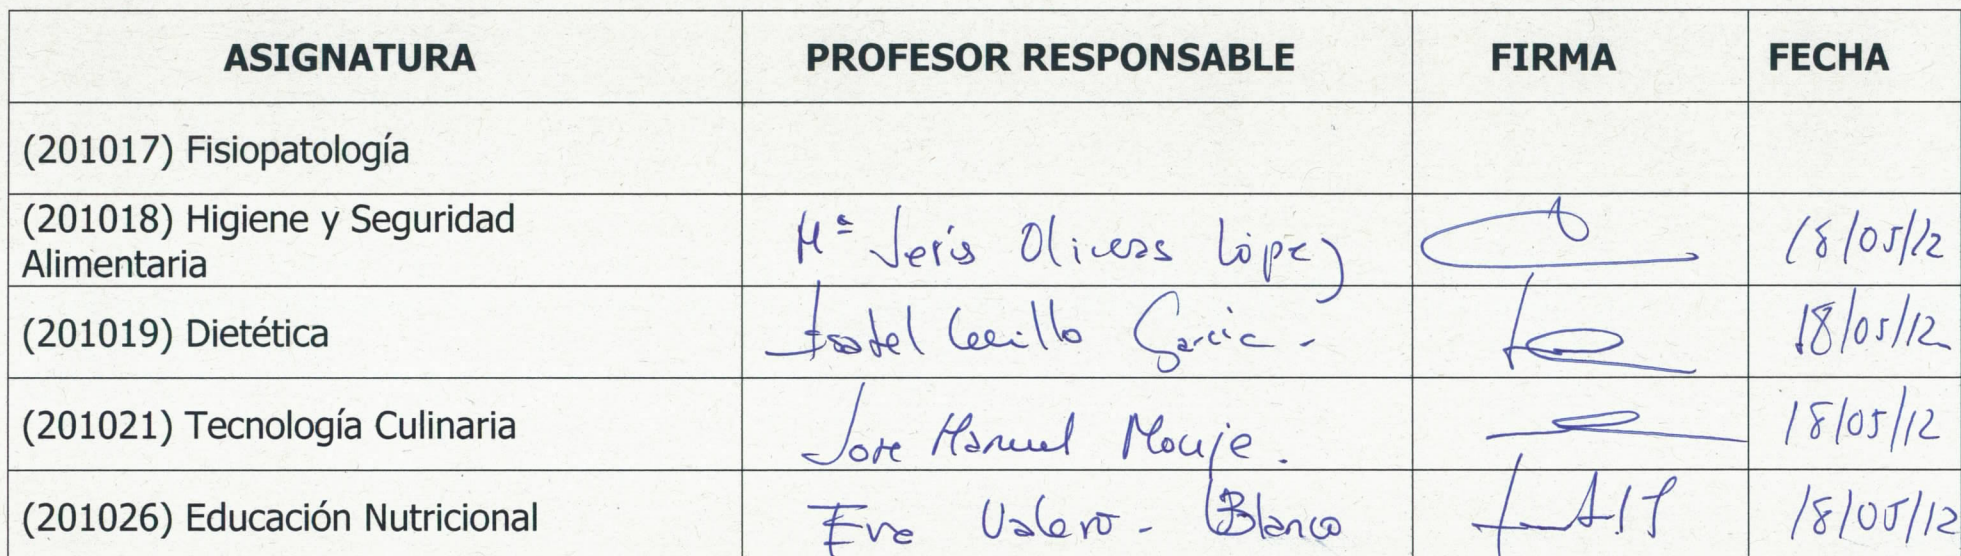 ASIGNATURA PROFESOR RESPONSABLE FIRMA FECHA
(201017) Fisiopatología
(201018) Higiene y Seguridad
Alimentaria Mª Jesús Oliveras López 18/05/12
(201019) Dietética Isabel Cerrillo García - 18/05/12
(201021) Tecnología Culinaria Jose Manuel 18/05/12
(201026) Educación Nutricional Eva Valero - Blanco 18/05/12